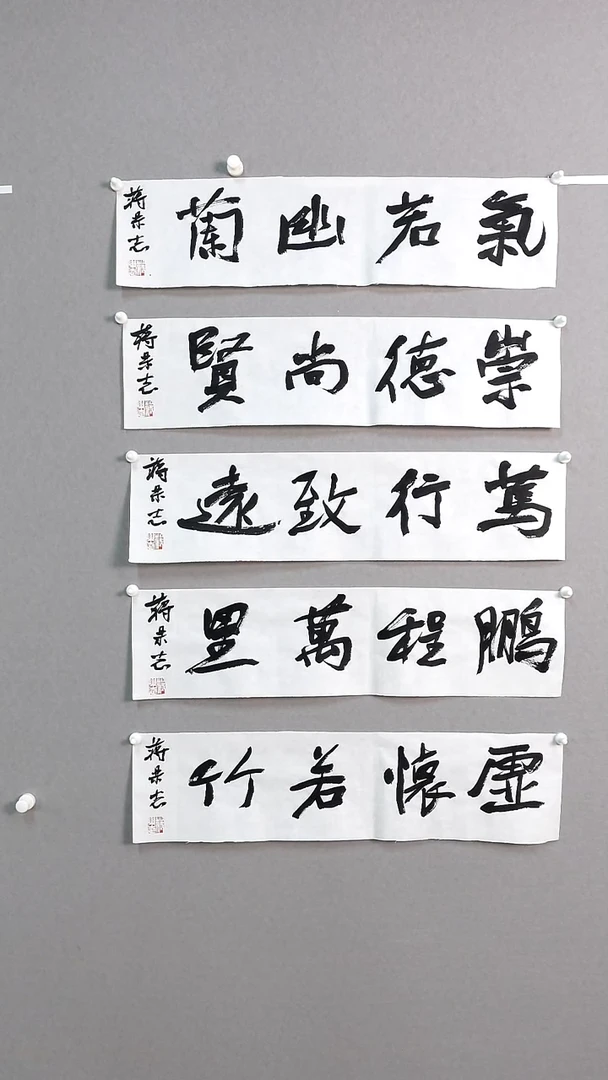 氣若幽蘭
蔣荣志
崇德尚賢
蔣荣志
篤行致遠
蔣荣志
鵬程萬里
蔣荣志
虛懷若竹
蔣荣志